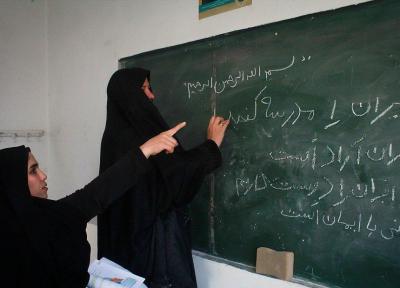 بسم الله الرحمن الرحیم
یران را مدرسه کنید
ران آزاد است
ایران را دوست داریم
نی با ایمان است